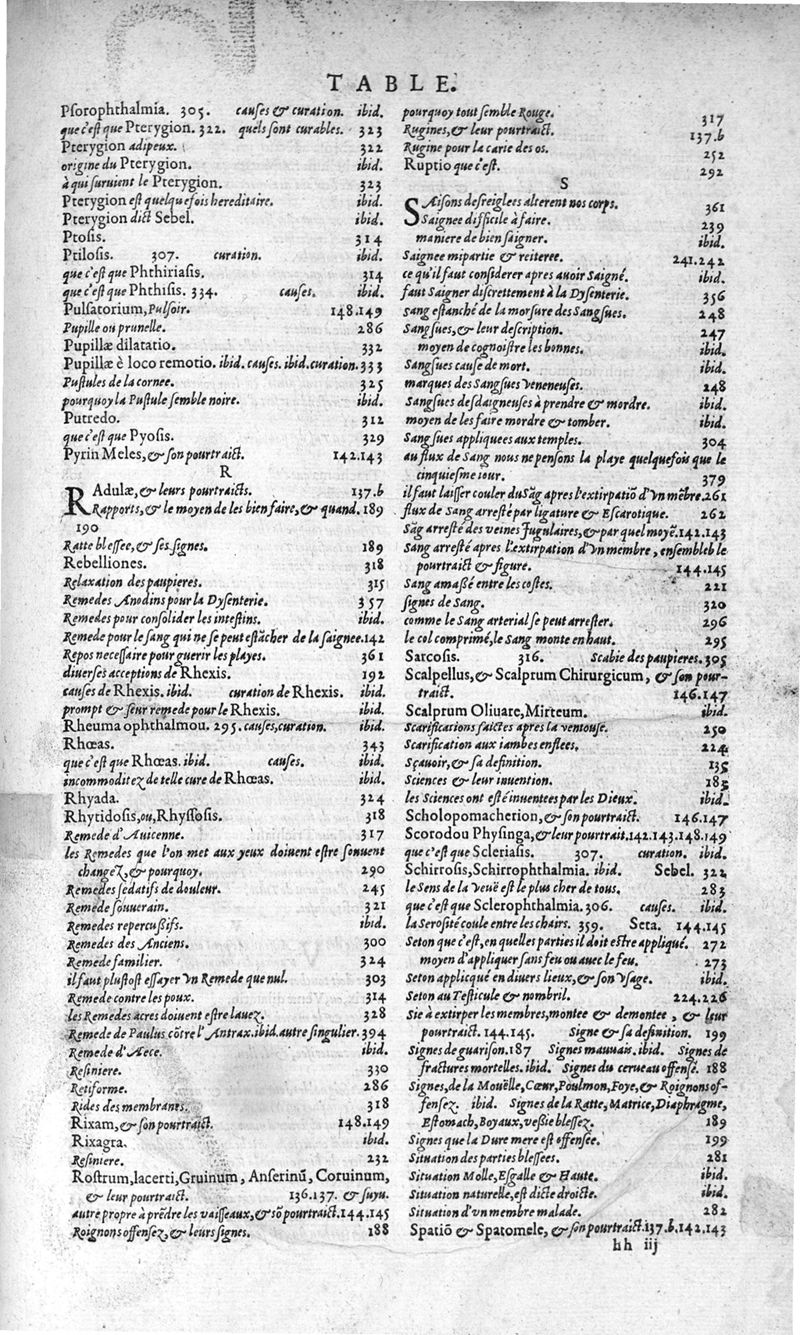 TABLE.
Psorophthalmia. 305. causes & curation. ibid.
que c'est que Pterygion. 322. quels sont curables. 323
Pterygion adipeux. 322
origine du Pterygion. ibid.
à qui suruient le Pterygion. 323
Pterygion est quelquefois hereditaire. ibid.
Pterygion dict Sebel. ibid.
Ptosis. 314
Ptilosis. 307. curation. ibid.
que c'est que Phthiriasis. 314
que c'est que Phthisis. 334. causes. ibid.
Pulsatorium, Pulsoir. 148.149
Pupille ou prunelle. 286
Pupillæ dilatatio. 332
Pupillæ è loco remotio. ibid. causes. ibid. curation. 333
Pustules de la cornee. 325
pourquoy la Pustule semble noire. ibid.
Putredo. 312
que c'est que Pyosis. 329
Pyrin Meles, & son pourtraict. 142.143
R
RAdulæ, & leurs pourtraicts. 137.b
Rapports, & le moyen de les bien faire, & quand. 189
190
Ratte blessee, & ses signes. 189
Rebelliones. 318
Relaxation des paupieres. 315
Remedes Anodins pour la Dysenterie. 357
Remedes pour consolider les intestins. ibid.
Remede pour le sang qui ne se peut estãcher de la saignee. 142
Repos necessaire pour guerir les playes. 361
diuerses acceptions de Rhexis. 192
causes de Rhexis. ibid. curation de Rhexis. ibid.
prompt & seur remede pour le Rhexis. ibid.
Rheuma ophthalmou. 295. causes, curation. ibid.
Rhœas. 343
que c'est que Rhœas. ibid. causes. ibid.
incommoditez de telle cure de Rhœas. ibid.
Rhyada. 324
Rhytidosis, ou, Rhyssosis. 318
Remede d'Auicenne. 317
les Remedes que l'on met aux yeux doiuent estre souuent
changez, & pourquoy. 290
Remedes sedatifs de douleur. 245
Remede souuerain. 321
Remedes repercussifs. ibid.
Remedes des Anciens. 300
Remede familier. 324
il faut plustost essayer vn Remede que nul. 303
Remede contre les poux. 314
les Remedes acres doiuent estre lauez. 328
Remede de Paulus cõtre l'Antrax. ibid. autre singulier. 394
Remede d'Aece. ibid.
Resiniere. 330
Retiforme. 286
Rides des membranes. 318
Rixam, & son pourtraict. 148.149
Rixagra. ibid.
Resiniere. 232
Rostrum, lacerti, Gruinum, Anserinũ, Coruinum,
& leur pourtraict. 136.137. & suyu.
autre propre à prẽdre les vaisseaux, & sõ pourtraict. 144.145
Roignons offensez, & leurs signes. 188
pourquoy tout semble Rouge. 317
Rugines, & leur pourtraict. 137.b
Rugine pour la carie des os. 252
Ruptio que c'est. 292
S
SAisons desreiglees alterent nos corps. 361
Saignee difficile à faire. 239
maniere de bien saigner. ibid.
Saignee mipartie & reiteree. 241.242
ce qu'il faut considerer apres auoir Saigné. ibid.
faut Saigner discrettement à la Dysenterie. 356
Sang estanché de la morsure des Sangsues. 248
Sangsues, & leur description. 247
moyen de cognoistre les bonnes. ibid.
Sangsues cause de mort. ibid.
marques des Sangsues veneneuses. 248
Sangsues desdaigneuses à prendre & mordre. ibid.
moyen de les faire mordre & tomber. ibid.
Sangsues appliquees aux temples. 304
au flux de Sang nous ne pensons la playe quelquefois que le
cinquiesme iour. 379
il faut laisser couler du Sãg apres l'extirpatiõ d'vn mẽbre. 261
flux de Sang arresté par ligature & Escarotique. 262
Sãg arresté des veines Iugulaires, & par quel moyẽ. 142.143
Sang arresté apres l'extirpation d'vn membre, ensembleb le
pourtraict & figure. 144.145
Sang amassé entre les costes. 221
signes de Sang. 320
comme le Sang arterial se peut arrester. 296
le col comprimé, le Sang monte en haut. 295
Sarcosis. 316. Scabie des paupieres. 305
Scalpellus, & Scalprum Chirurgicum, & son pour-
traict. 146.147
Scalprum Oliuare, Mirteum. ibid.
Scarifications faictes apres la ventouse. 250
Scarification aux iambes enflees. 224
Sçauoir, & sa definition. 135
Sciences & leur inuention. 185
les Sciences ont esté inuentees par les Dieux. ibid.
Scholopomacherion, & son pourtraict. 146.147
Scorodou Physinga, & leur pourtrait. 142.143.148.149
que c'est que Scleriasis. 307. curation. ibid.
Schirrosis, Schirrophthalmia. ibid. Sebel. 322
le Sens de la Veuë est le plus cher de tous. 283
que c'est que Sclerophthalmia. 306. causes. ibid.
la Serosité coule entre les chairs. 359. Seta. 144.145
Seton que c'est, en quelles parties il doit estre appliqué. 272
moyen d'appliquer sans feu ou auec le feu. 273
Seton applicqué en diuers lieux, & son vsage. ibid.
Seton au Testicule & nombril. 224.226
Sie à extirper les membres, montee & demontee, & leur
pourtraict. 144.145. Signe & sa definition. 199
Signes de guarison. 187 Signes mauuais. ibid. Signes de
fractures mortelles. ibid. Signes du cerueau offensé. 188
Signes, de la Mouëlle, Cœur, Poulmon, Foye, & Roignons of-
fensez. ibid. Signes de la Ratte, Matrice, Diaphragme,
Estomach, Boyaux, vessie blessez. 189
Signes que la Dure mere est offensee. 199
Situation des parties blessees. 281
Situation Molle, Esgalle & Haute. ibid.
Situation naturelle, est dicte droicte. ibid.
Situation d'vn membre malade. 282
Spatiõ & Spatomele, & son pourtraict. 137.b. 142.143
hh iij